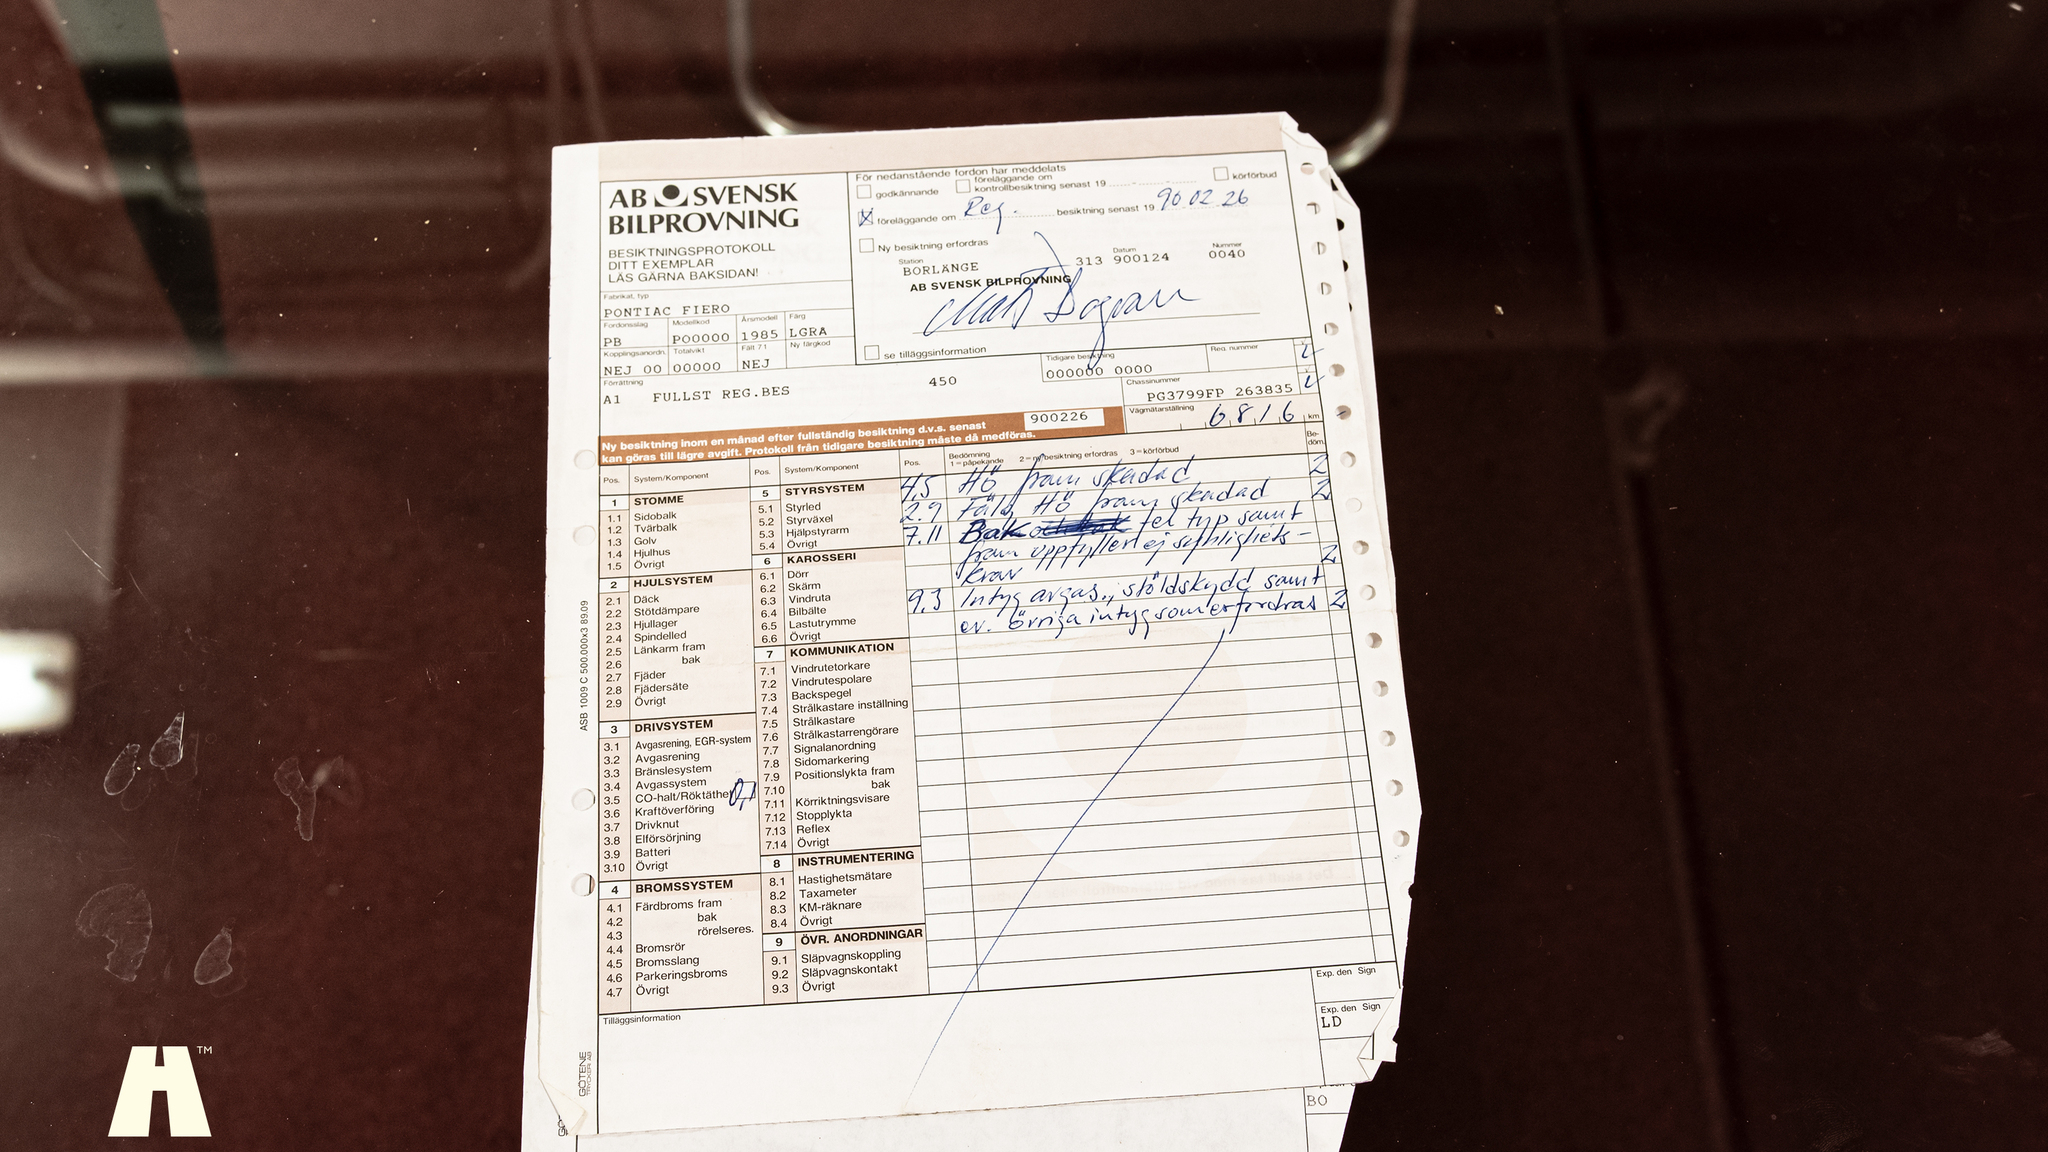 För nedanstående fordon har meddelats
godkännande
föreläggande om
kontrollbesiktning senast 19
körförbud
föreläggande om Reg. besiktning senast 19 90 02 26
Ny besiktning erfordras
AB SVENSK
BILPROVNING
BESIKTNINGSPROTOKOLL
DITT EXEMPLAR
LÄS GÄRNA BAKSIDAN!
Station
BORLÄNGE
Datum
313 900124
Nummer
0040
AB SVENSK BILPROVNING
se tilläggsinformation
Fabrikat, typ
PONTIAC FIERO
Fordonsslag Modellkod Årsmodell Färg
PB P00000 1985 LGRA
Kopplingsanordn. Totalvikt Fält 71 Ny färgkod
NEJ 00 00000 NEJ
Tidigare besiktning
000000 0000
Reg. nummer
Förrättning
A1 FULLST REG.BES 450
Chassinummer
PG3799FP 263835
Vägmätarställning
6816 km
Ny besiktning inom en månad efter fullständig besiktning d.v.s. senast 900226
kan göras till lägre avgift. Protokoll från tidigare besiktning måste då medföras.
Pos. System/Komponent Pos. System/Komponent Pos.
Bedömning
1 = påpekande 2 = ny besiktning erfordras 3 = körförbud
Be-
döm.
4.5 Hö fram skadad 2
2.9 Fälg Hö fram skadad 2
7.11 Bak fel typ samt
fram uppfyller ej synlighets-
krav 2
9.3 Intyg avgas., stöldskydd samt
ev. övriga intyg som erfordras 2
1 STOMME
1.1 Sidobalk
1.2 Tvärbalk
1.3 Golv
1.4 Hjulhus
1.5 Övrigt
2 HJULSYSTEM
2.1 Däck
2.2 Stötdämpare
2.3 Hjullager
2.4 Spindelled
2.5 Länkarm fram
2.6 bak
2.7 Fjäder
2.8 Fjädersäte
2.9 Övrigt
3 DRIVSYSTEM
3.1 Avgasrening, EGR-system
3.2 Avgasrening
3.3 Bränslesystem
3.4 Avgassystem
3.5 CO-halt/Röktäthet
3.6 Kraftöverföring
3.7 Drivknut
3.8 Elförsörjning
3.9 Batteri
3.10 Övrigt
4 BROMSSYSTEM
4.1 Färdbroms fram
4.2 bak
4.3 rörelseres.
4.4 Bromsrör
4.5 Bromsslang
4.6 Parkeringsbroms
4.7 Övrigt
5 STYRSYSTEM
5.1 Styrled
5.2 Styrväxel
5.3 Hjälpstyrarm
5.4 Övrigt
6 KAROSSERI
6.1 Dörr
6.2 Skärm
6.3 Vindruta
6.4 Bilbälte
6.5 Lastutrymme
6.6 Övrigt
7 KOMMUNIKATION
7.1 Vindrutetorkare
7.2 Vindrutespolare
7.3 Backspegel
7.4 Strålkastare inställning
7.5 Strålkastare
7.6 Strålkastarrengörare
7.7 Signalanordning
7.8 Sidomarkering
7.9 Positionslykta fram
7.10 bak
7.11 Körriktningsvisare
7.12 Stopplykta
7.13 Reflex
7.14 Övrigt
8 INSTRUMENTERING
8.1 Hastighetsmätare
8.2 Taxameter
8.3 KM-räknare
8.4 Övrigt
9 ÖVR. ANORDNINGAR
9.1 Släpvagnskoppling
9.2 Släpvagnskontakt
9.3 Övrigt
Tilläggsinformation
Exp. den Sign
Exp. den Sign
LD
BO
ASB 1009 C 500.000x3 89.09
GÖTENE
TRYCKERI AB
H™